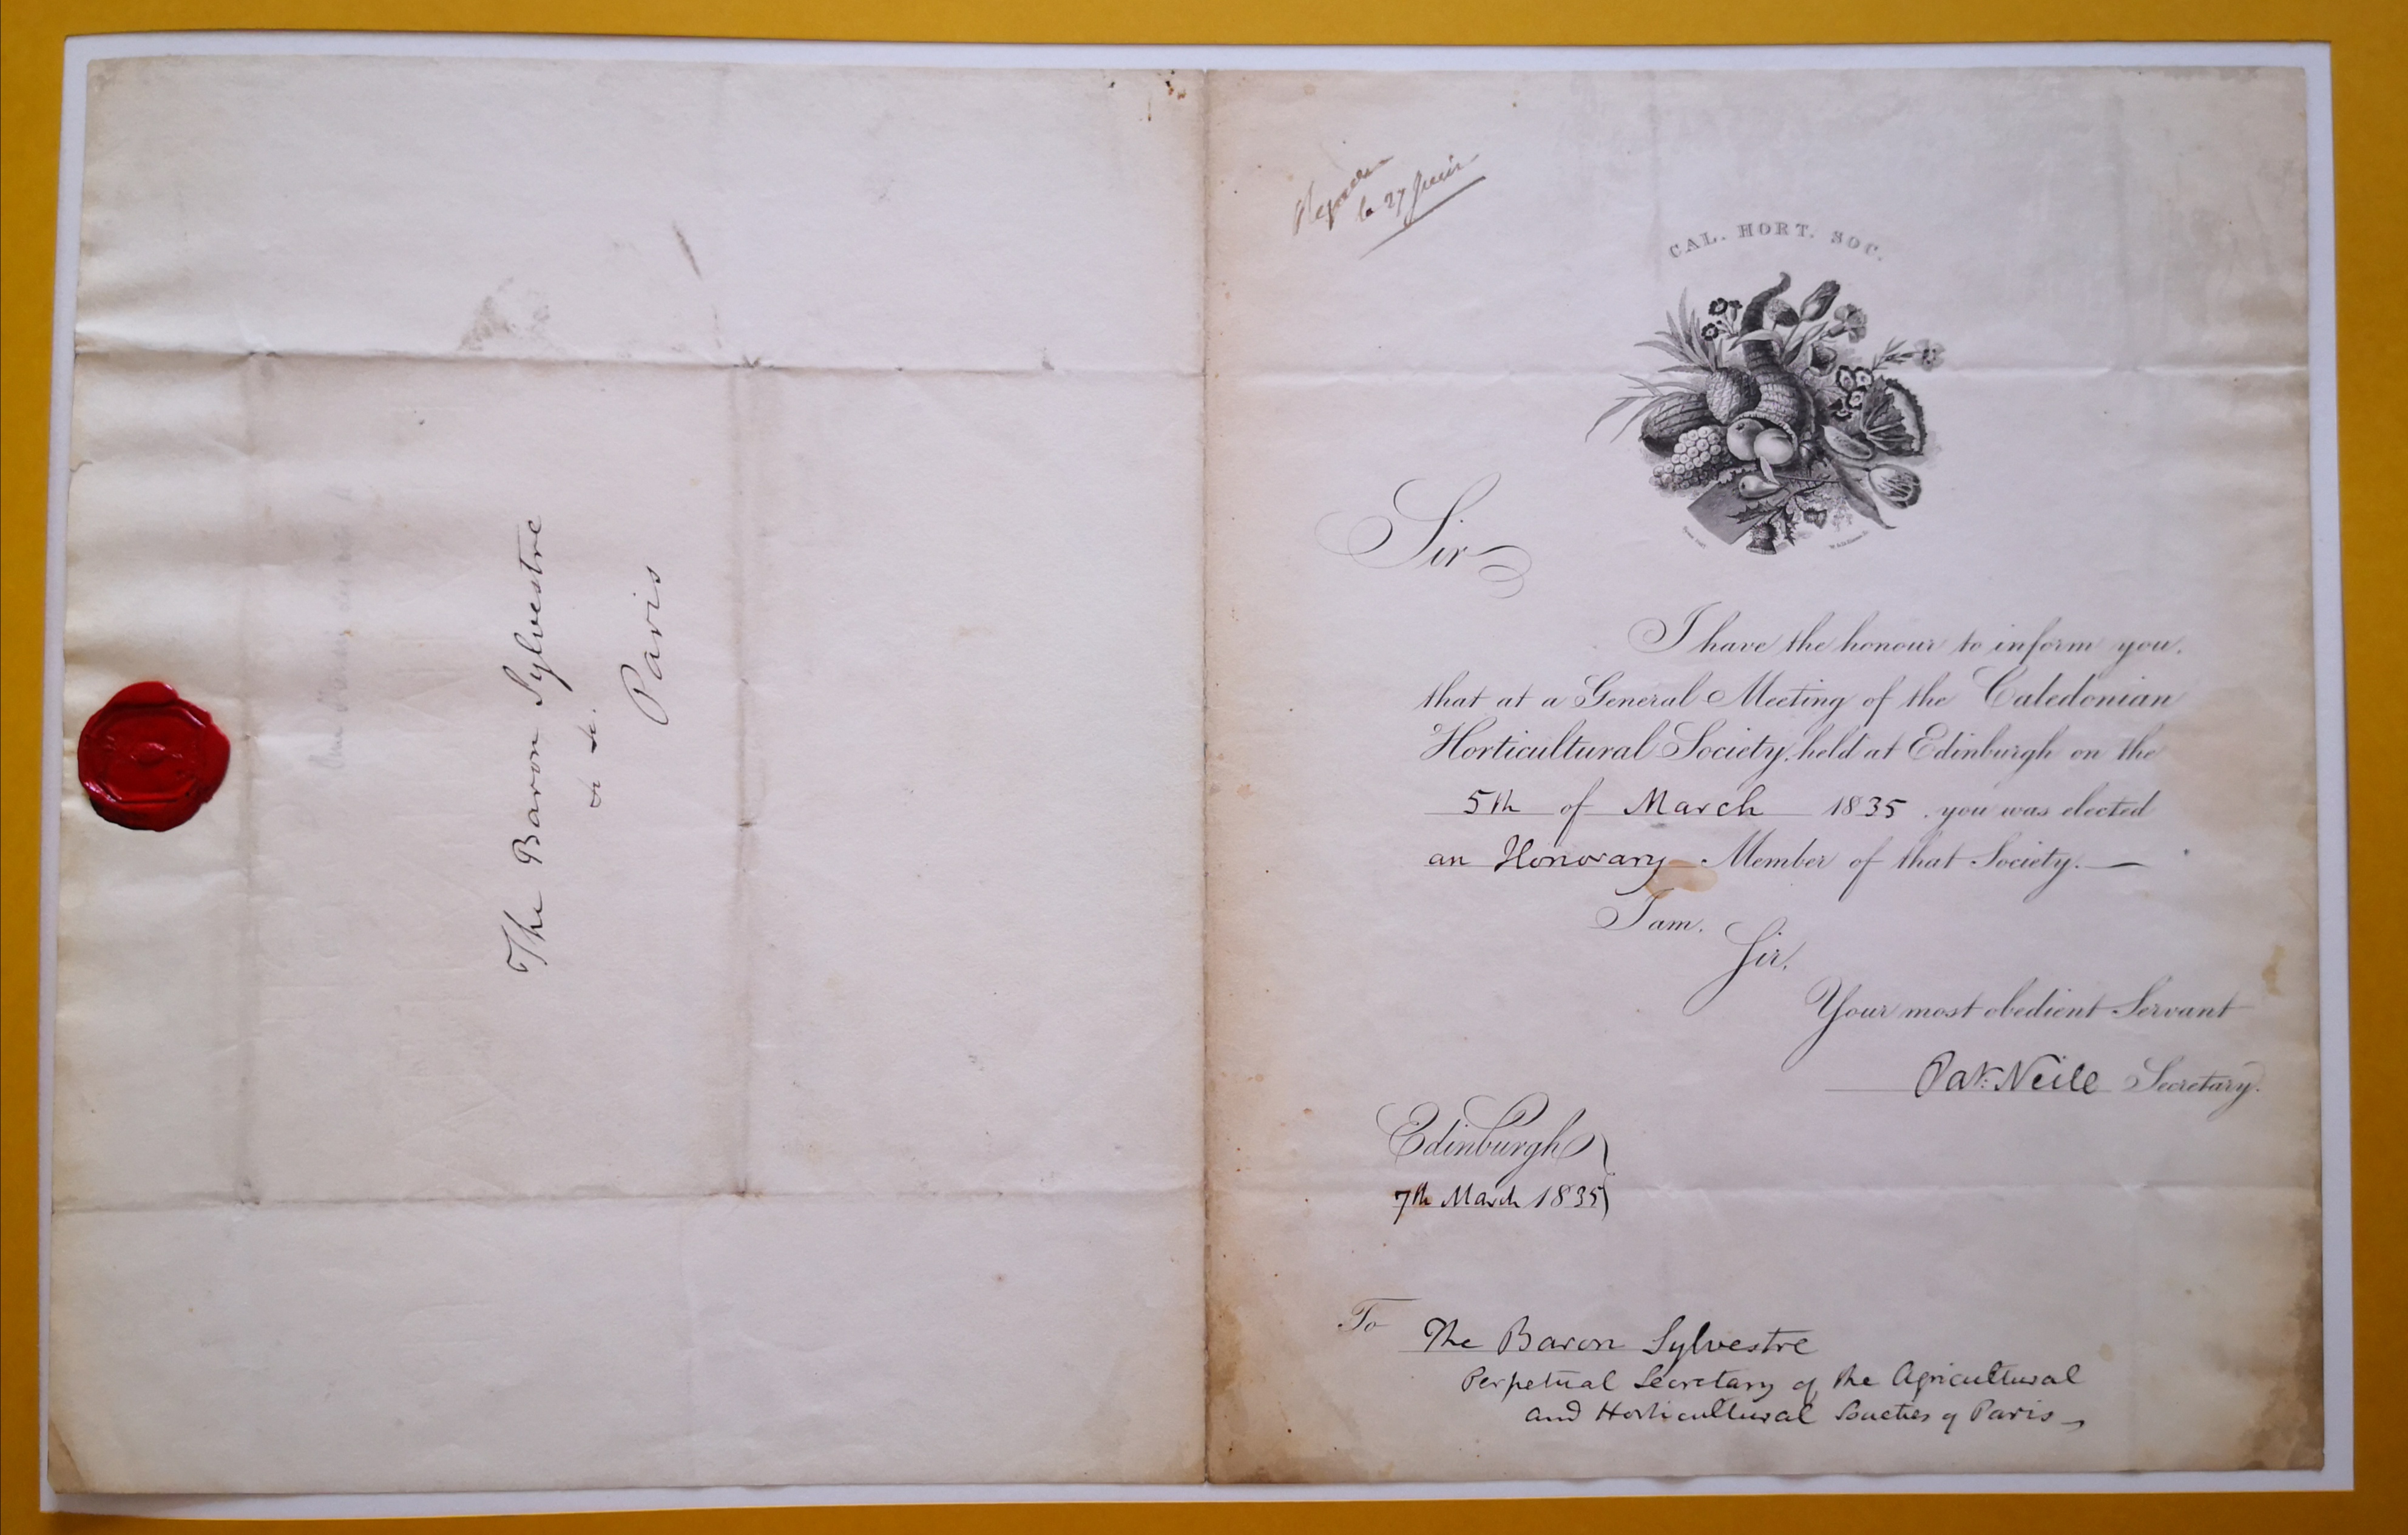 The Baron Sylvestre
&c &c.
Paris
le 27 Juin
CAL. HORT. SOC.
Sir
I have the honour to inform you,
that at a General Meeting of the Caledonian
Horticultural Society, held at Edinburgh on the
5th of March 1835, you was elected
an Honorary Member of that Society.—
I am,
Sir,
Your most obedient Servant
Pat: Neill Secretary.
Edinburgh
7th March 1835
To The Baron Sylvestre
Perpetual Secretary of the Agricultural
and Horticultural Societies of Paris